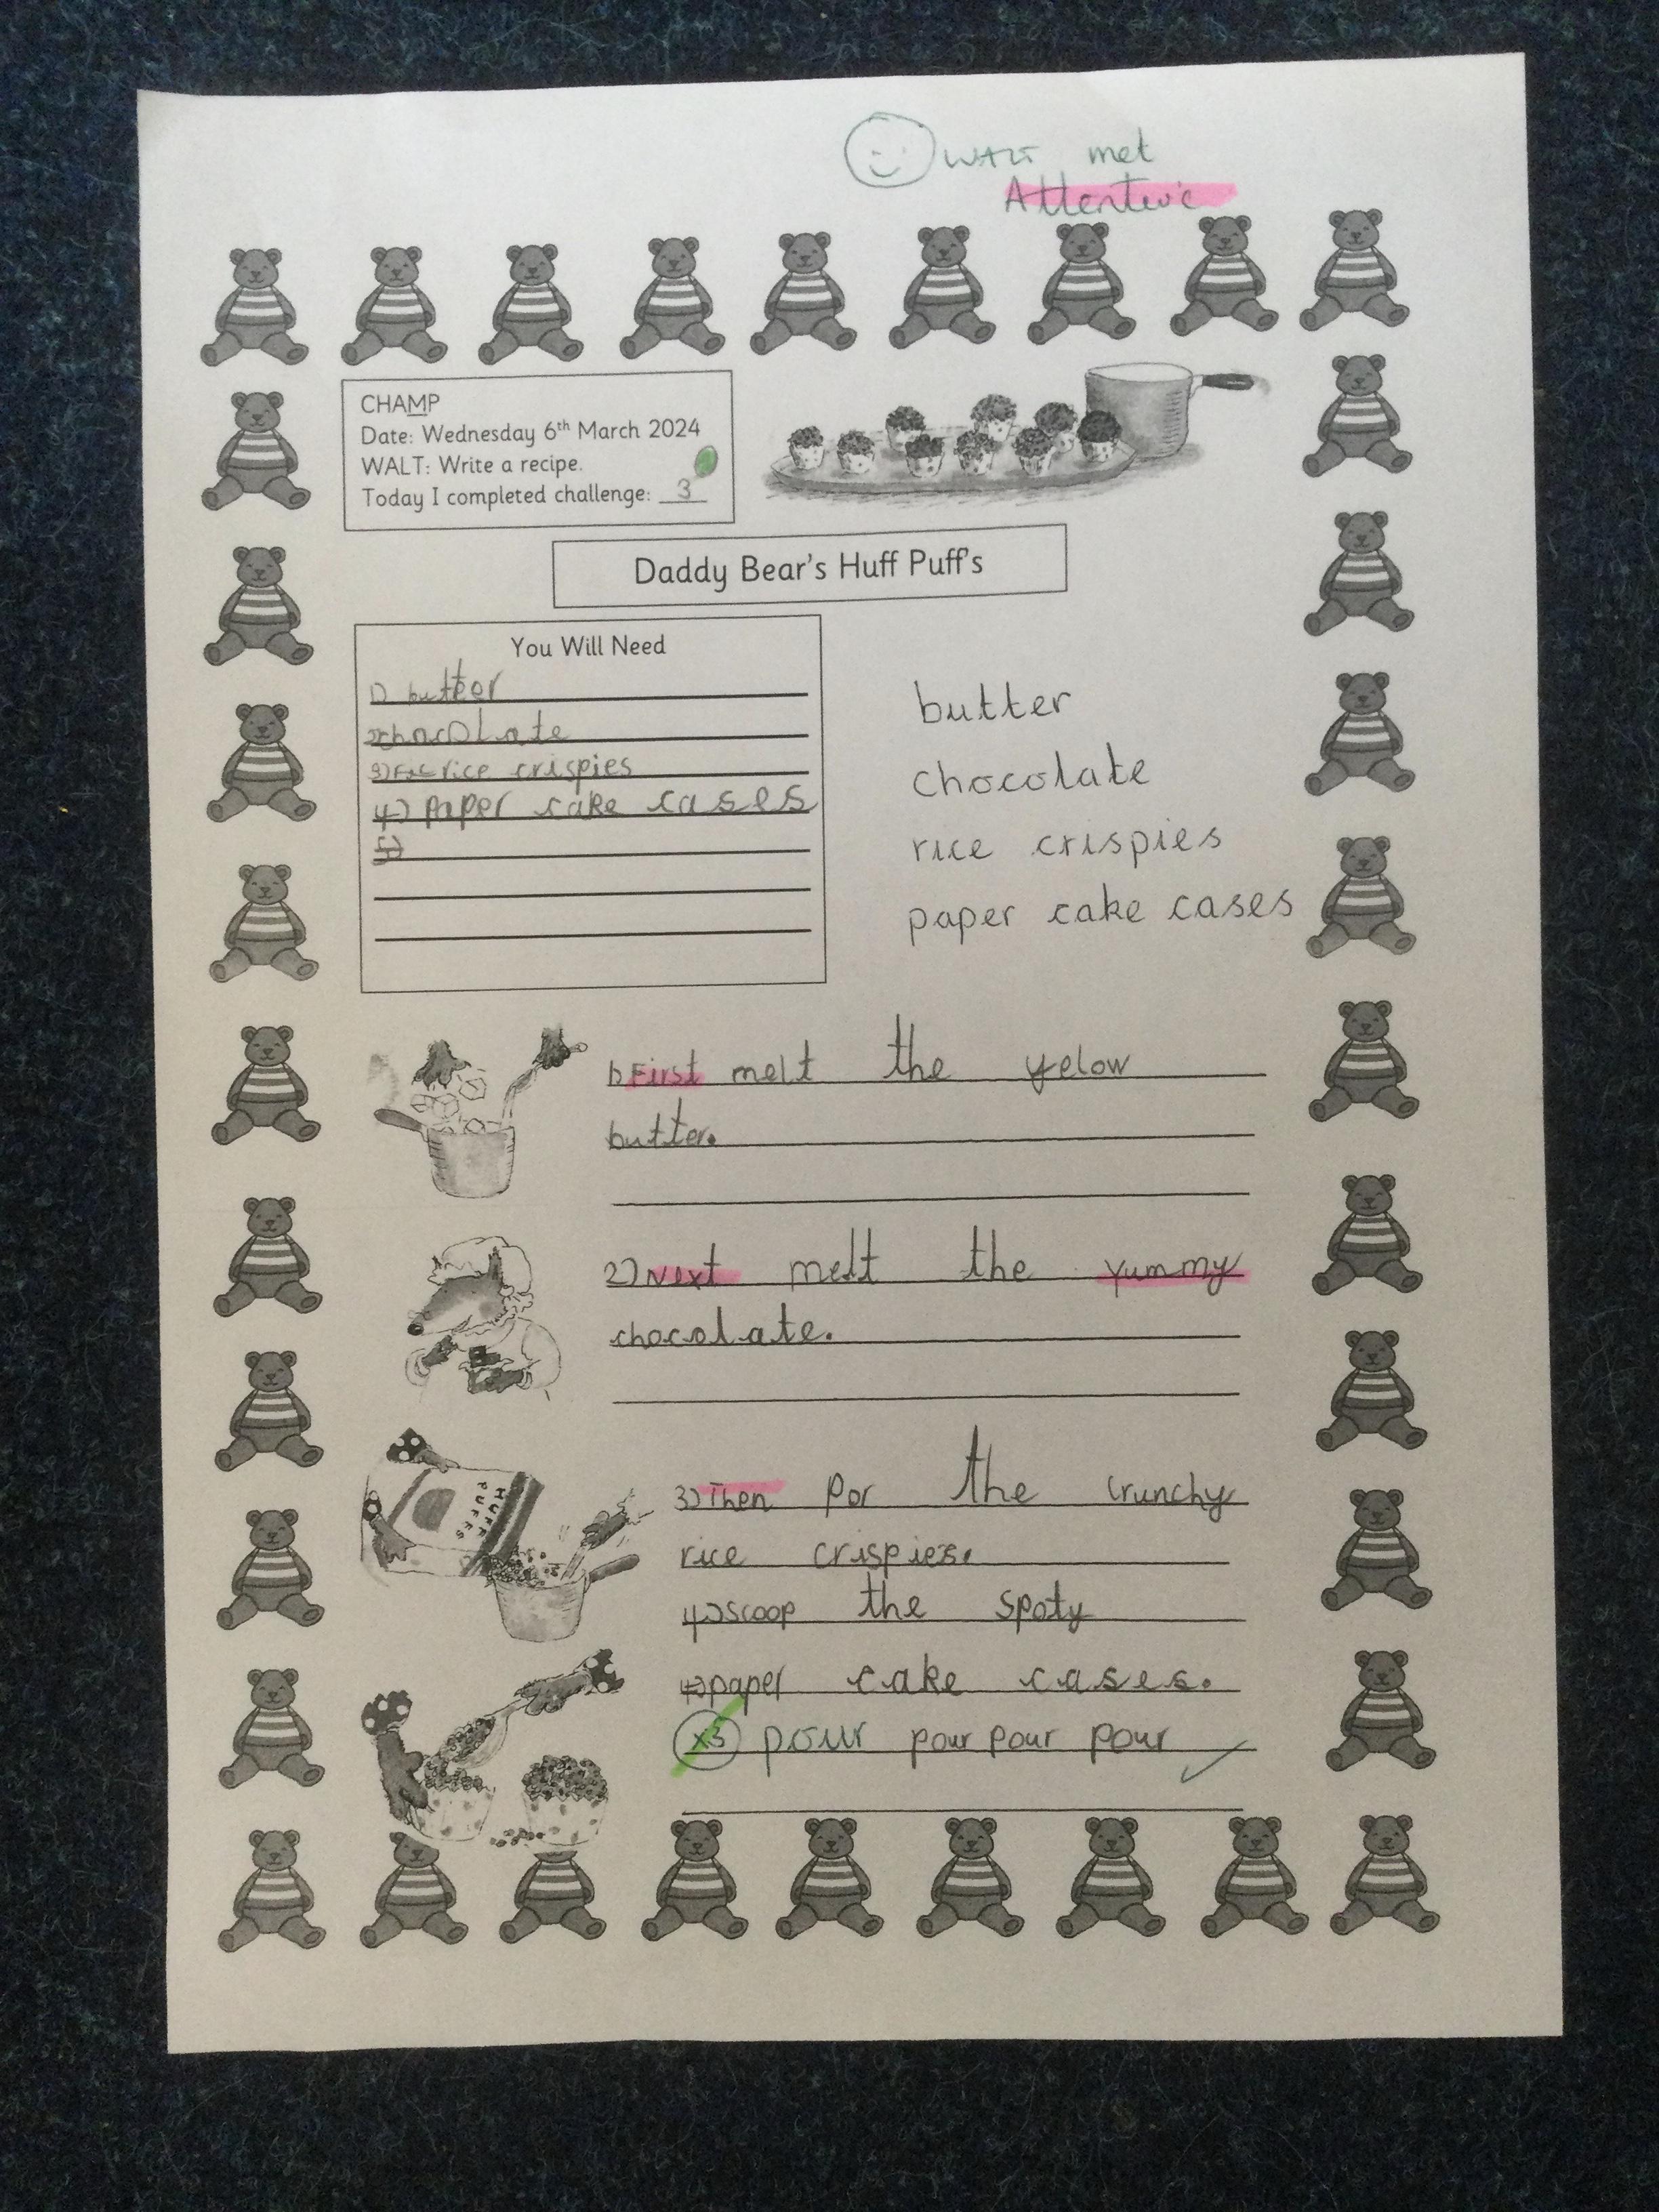 WALT met
Attentive
CHAMP
Date: Wednesday 6th March 2024
WALT: Write a recipe.
Today I completed challenge: 3
Daddy Bear's Huff Puff's
You Will Need
1) butter
2) chocolate
3) rice crispies
4) paper cake cases
5)
butter
chocolate
rice crispies
paper cake cases
1) First melt the yelow
butter.
2) Next melt the yummy
chocolate.
HUFF
PUFFS
3) Then por the crunchy
rice crispies.
4) scoop the spoty
paper cake cases.
x3 pour pour pour pour